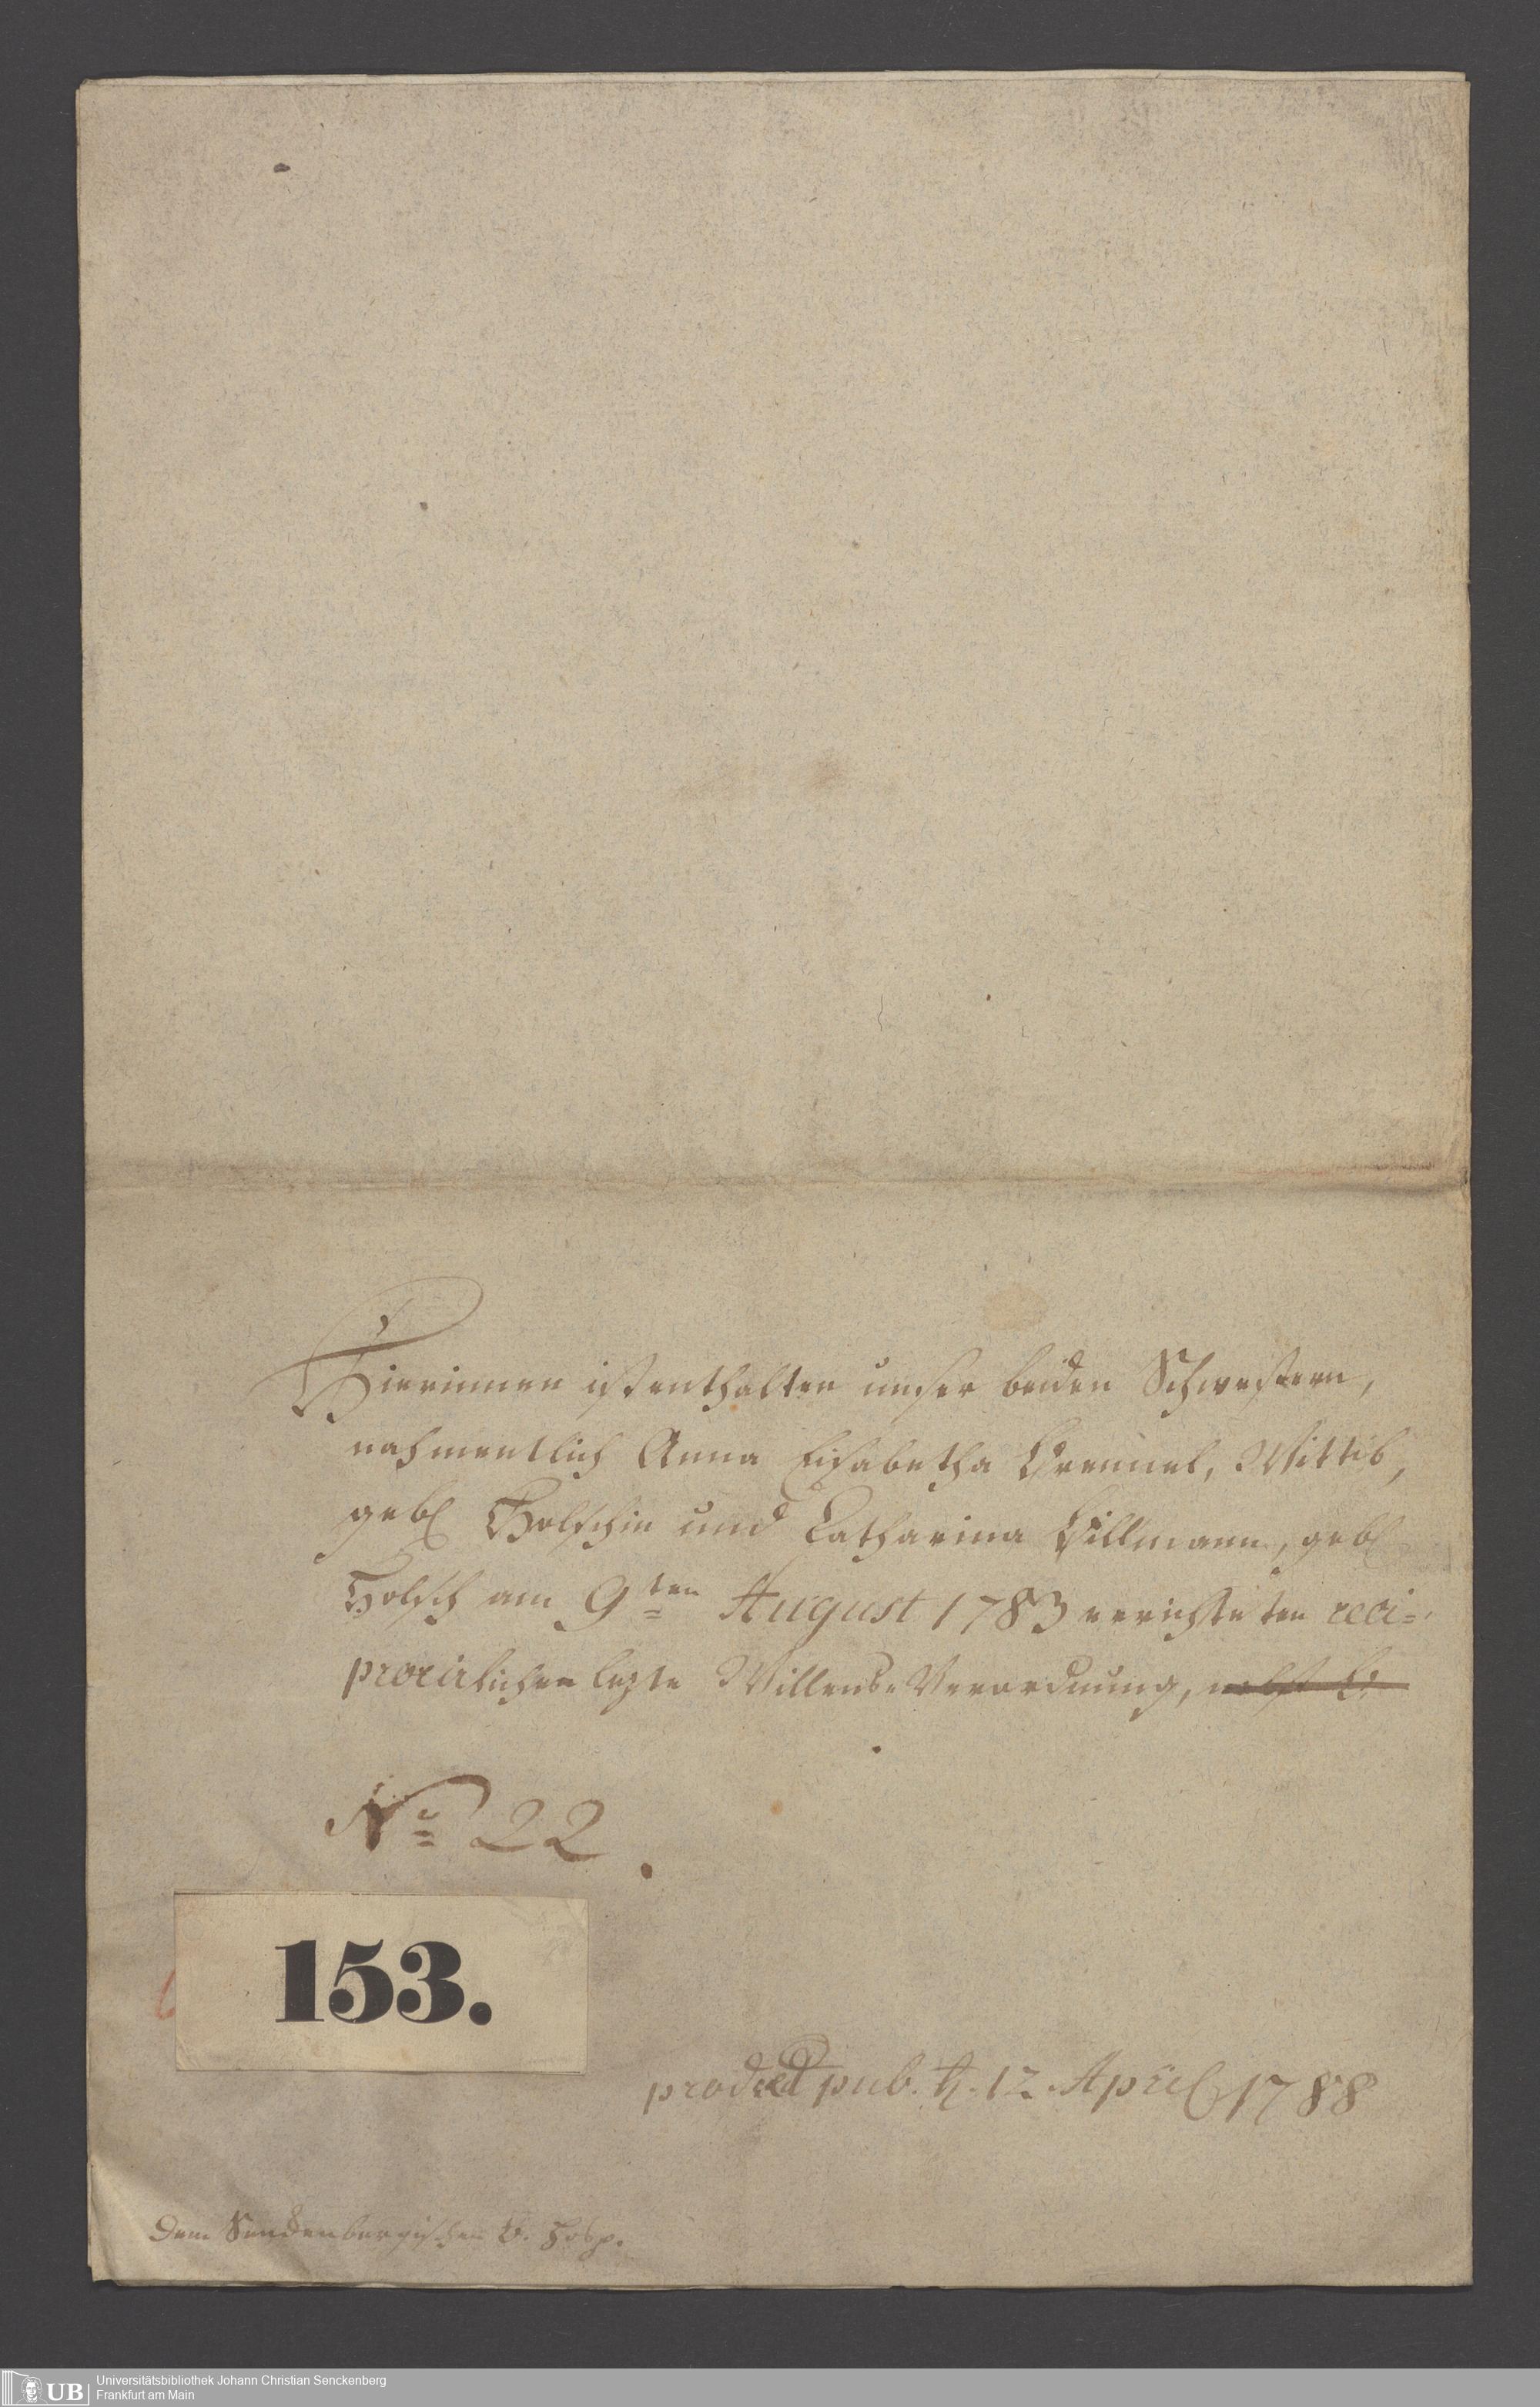 Hierinnen ist enthalten unser beiden Schwestern,
nahmentlich Anna Elisabetha Wittib,
geb. und Catharina Willmann, geb.
am 9ten August 1783 errichteten reci=
procirlichen lezte Willens-Verordnung, nebst
No 22.
153.
pub. 12. April 1788
Dem Senckenbergischen B. Hosp.
UB
Universitätsbibliothek Johann Christian Senckenberg
Frankfurt am Main